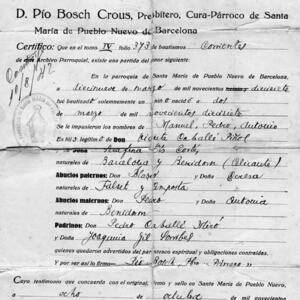 D. Pío Bosch Crous, Presbítero, Cura-Párroco de Santa
María de Pueblo Nuevo de Barcelona.
Certifico: Que en el tomo IV folio 373 de bautismos Corrientes
de este Archivo Parroquial, existe una partida del tenor siguiente:
En la parroquia de Santa María de Pueblo Nuevo de Barcelona,
a diecinueve de marzo de mil novecientos diecisiete
fué bautizado solemnemente un niño nacido a dos
de marzo de mil novecientos diecisiete
Se impusieron los nombres de Manuel, Pedro, Antonio
Es hijo legítimo de Don Vicente Caballé
y Doña Serafina Cortés
naturales de Barcelona y Benidorm (Alicante)
Abuelos paternos: Don y Doña Teresa
naturales de Falset y
Abuelos maternos: Don Pedro y Doña Antonia
naturales de Benidorm
Padrinos: Don Pedro Caballé Miró
y Doña Joaquina Gil
quienes quedaron advertidos del parentesco espiritual y obligaciones contraídas.
Y por ser así lo firmo Pío Bosch, Pbro
Cuyo testimonio concuerda con el original, firmo y sello en Santa María de Pueblo Nuevo,
a ocho de octubre de mil novecientos